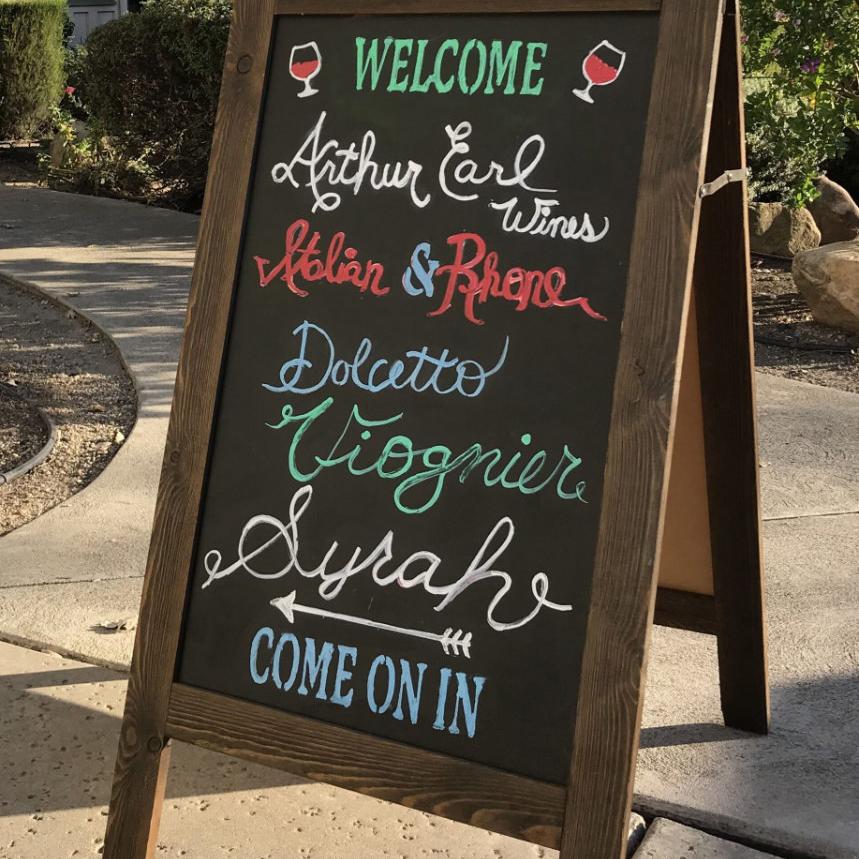 WELCOME
Arthur Earl
Wines
Italian & Rhone
Dolcetto
Viognier
Syrah
COME ON IN